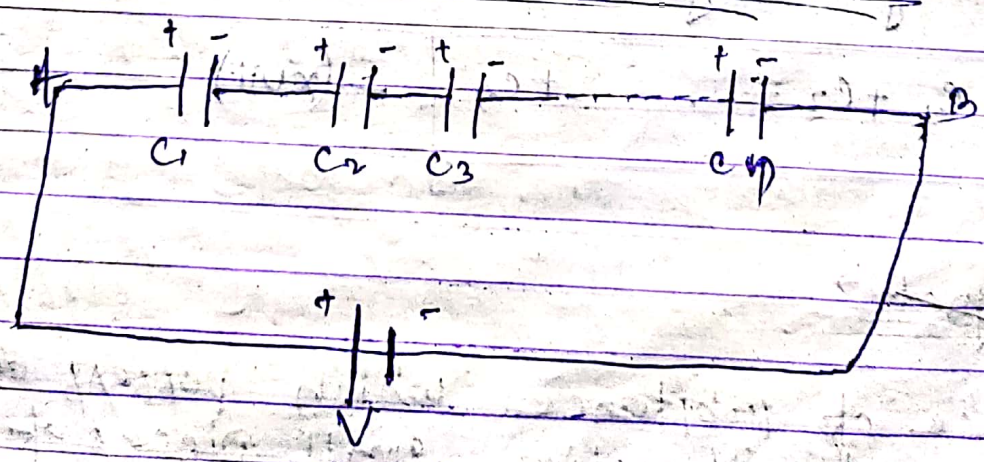 + - + - + - + -
A B
C1 C2 C3
+ -
V